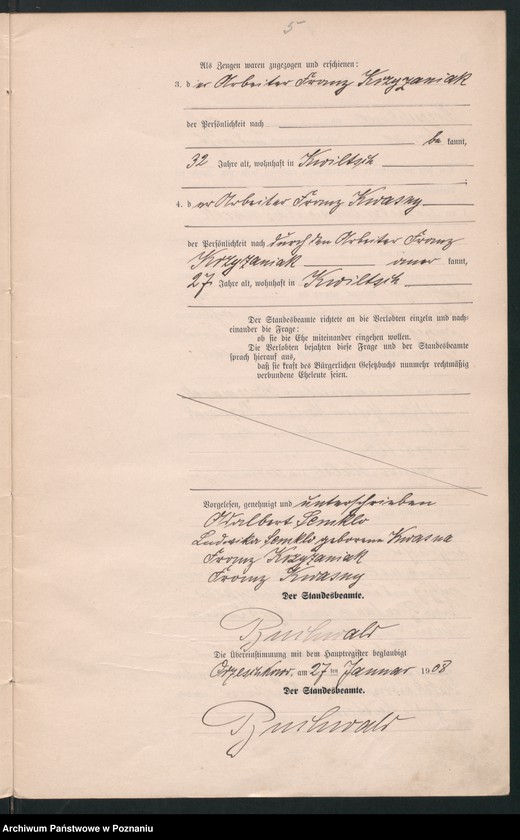 5
Als Zeugen waren zugezogen und erschienen:
3. der Arbeiter Franz Krzyzaniak
der Persönlichkeit nach
be kannt,
32 Jahre alt, wohnhaft in Kwiltsch
4. der Arbeiter Franz Kwasny
der Persönlichkeit nach durch den Arbeiter Franz
Krzyzaniak aner kannt,
27 Jahre alt, wohnhaft in Kwiltsch
Der Standesbeamte richtete an die Verlobten einzeln und nach-
einander die Frage:
ob sie die Ehe miteinander eingehen wollen.
Die Verlobten bejahten diese Frage und der Standesbeamte
sprach hierauf aus,
daß sie kraft des Bürgerlichen Gesetzbuchs nunmehr rechtmäßig
verbundene Eheleute seien.
Vorgelesen, genehmigt und unterschrieben
Adalbert Semklo
Ludwika Semklo geborene Kwasna
Franz Krzyzaniak
Franz Kwasny
Der Standesbeamte.
Buchwald
Die Übereinstimmung mit dem Hauptregister beglaubigt
Orzeschkowo, am 27 ten Januar 1908
Der Standesbeamte.
Buchwald
Archiwum Państwowe w Poznaniu